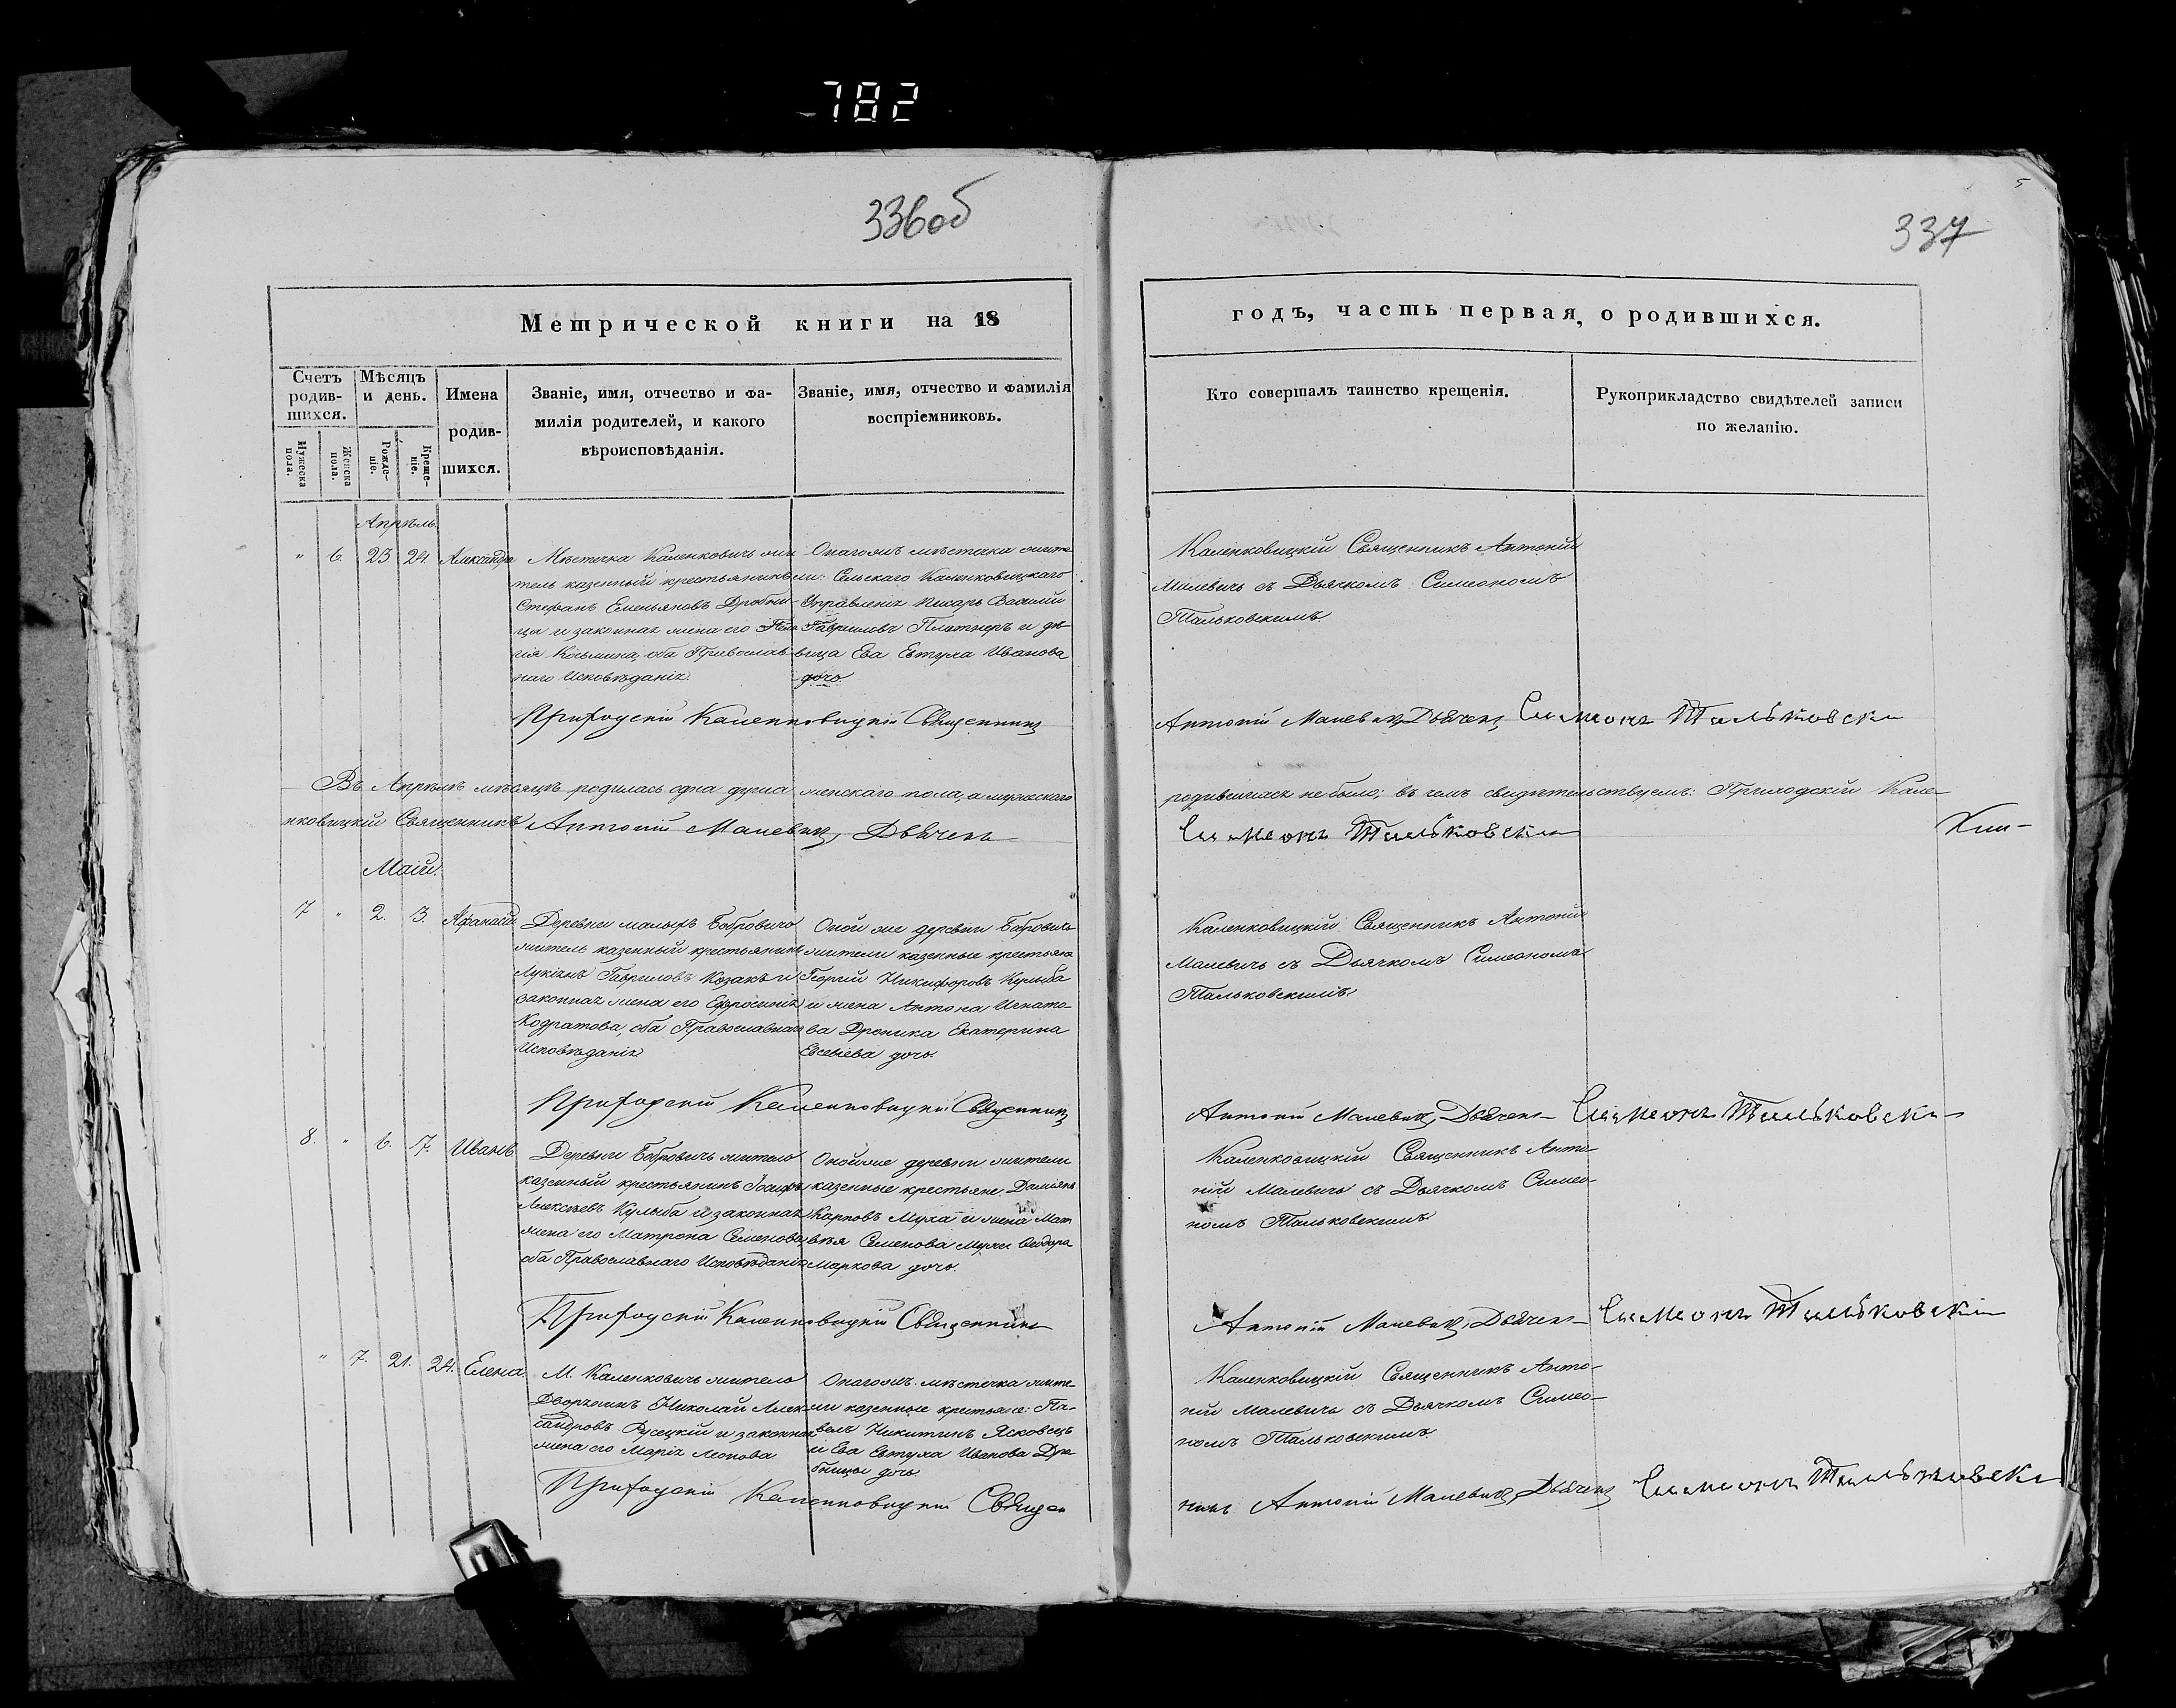 782
336об
Метрической книги на 18
Счетъ родив-шихся.
Мѣсяцъ и день.
Имена родив-шихся.
Званіе, имя, отчество и фа-
милія родителей, и какого
вѣроисповѣданія.
Званіе, имя, отчество и фамилія
воспріемниковъ.
Мужеска пола.
Женска пола.
Рожде-ніе.
Креще-ніе.
Апрѣль.
" 6. 23 24. Александра
Мѣстечка Каленковичъ жи
тель казенный крестьянинъ
Стефанъ Емельяновъ Дробни-
ца и законная жена его
Козьмина, оба Православ-
наго Исповѣданія.
Онагожъ мѣстечка жите
ли: Сельскаго Каленковицкаго
Управленія Писарь Василій
Гавриловъ Платнеръ и дѣ-
вица Ева Евтуха Иванова
дочь.
Приходскій Каленковицкій Священникъ
Въ Апрѣлѣ мѣсяцѣ родилась одна душа женскаго пола, а мужескаго
нковицкій Священникъ Антоній Малевичъ, Дьячекъ
Маій.
7 " 2. 3. Афанасій
Деревни малыхъ Бобровичъ
житель казенный крестьянинъ
Лукіянъ Гавриловъ Козакъ и
законная жена его Ефросинія
Кодратова, оба Православнаго
Исповѣданія
Оной же деревни Бобровичъ
жители казенные крестьяне
Георгій Никифоровъ Кулыба
и жена Антона Игнато-
ва Дроника Екатерина
Евсевіева дочь.
Приходскій Каленковицкій Священникъ
8. " 6. 7. Иванъ
Деревни Бобровичъ житель
казенный крестьянинъ Іосифъ
Алексѣевъ Кулыба и законная
жена его Матрона Семенова,
оба Православнаго Исповѣданія
Онойже деревни жители
казенные крестьяне: Даміянъ
Карповъ Муха и жена Мат
вѣя Семенова Мухи Феодора
Маркова дочь.
Приходскій Каленковицкій Священникъ
" 7. 21. 24. Елена.
М. Каленковичъ житель
Дворянинъ Николай Алек
сандровъ Русецкій и законная
жена его Марія Леонова
Онагожъ мѣстечка жите
ли казенные крестьяне: Па-
велъ Никитинъ Ясковецъ
и Ева Евтуха Иванова Дро
бницы дочь.
Приходскій Каленковицкій Священ
337
годъ, часть первая, о родившихся.
Кто совершалъ таинство крещенія.
Рукоприкладство свидѣтелей записи
по желанію.
Каленковицкій Священникъ Антоній
Малевичъ съ Дьячкомъ Симеономъ
Тальковскимъ
Антоній Малевичъ, Дьячекъ Симеонъ Тальковскі
родившихся не было; въ чемъ свидѣтельствуемъ: Приходскій Кале-
Симеонъ Тальковскі
Каленковицкій Священникъ Антоній
Малевичъ съ Дьячкомъ Симеономъ
Тальковскимъ
Антоній Малевичъ, Дьячекъ Симеонъ Тальковскі
Каленковицкій Священникъ Анто-
ній Малевичъ съ Дьячкомъ Симео-
номъ Тальковскимъ
Антоній Малевичъ, Дьячекъ Симеонъ Тальковскі
Каленковицкій Священникъ Анто-
ній Малевичъ съ Дьячкомъ Симео-
номъ Тальковскимъ
никъ Антоній Малевичъ, Дьячекъ Симеонъ Тальковскі